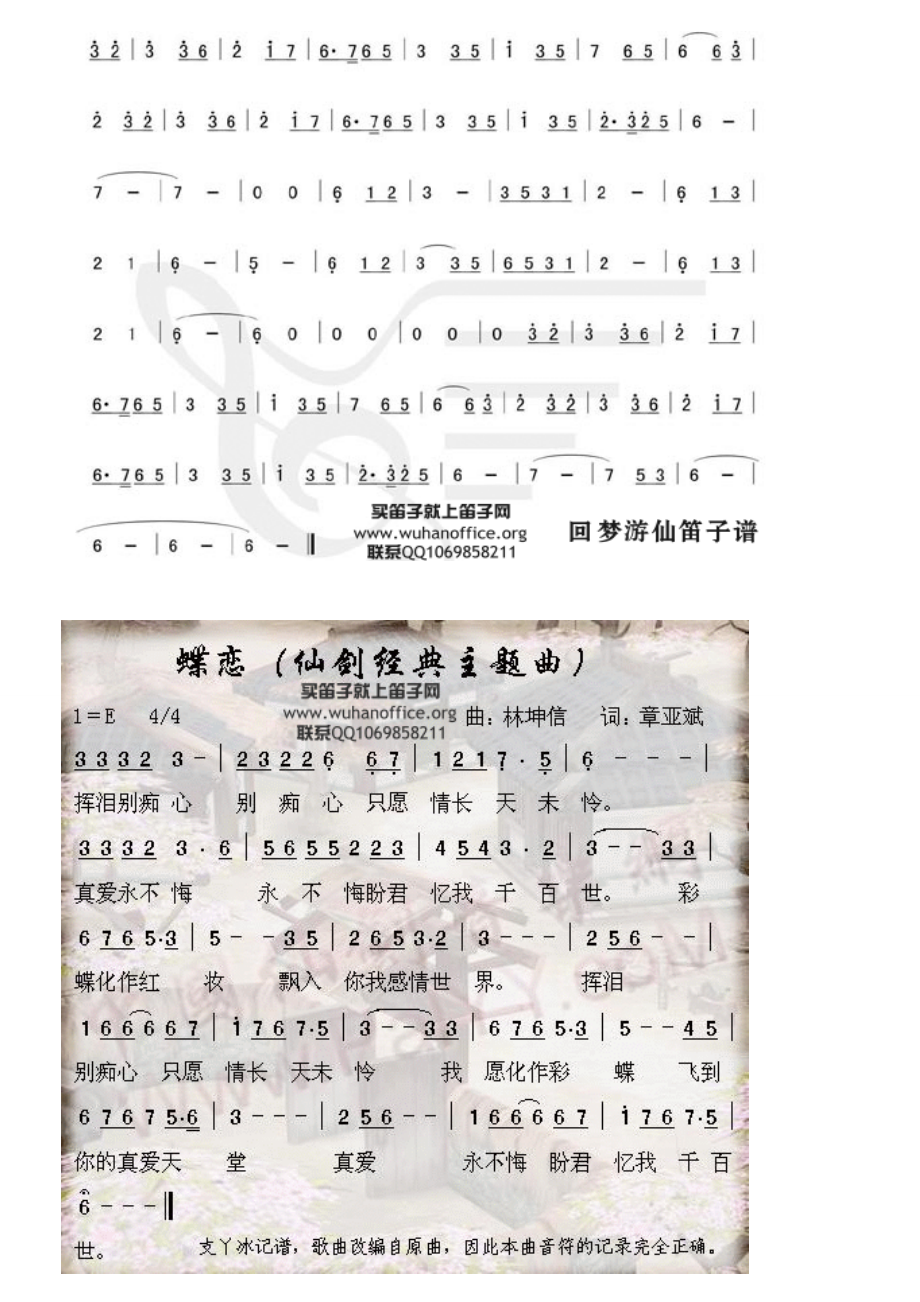 3̇ 2̇ | 3̇ 3̇ 6 | 2̇ 1̇ 7 | 6· 7 6 5 | 3 3 5 | 1̇ 3 5 | 7 6 5 | 6 6 3̇ |
2̇ 3̇ 2̇ | 3̇ 3̇ 6 | 2̇ 1̇ 7 | 6· 7 6 5 | 3 3 5 | 1̇ 3 5 | 2̇· 3̇ 2̇ 5 | 6 － |
7 － | 7 － | 0 0 | 6̣ 1 2 | 3 － | 3 5 3 1 | 2 － | 6̣ 1 3 |
2 1 | 6̣ － | 5̣ － | 6̣ 1 2 | 3 3 5 | 6 5 3 1 | 2 － | 6̣ 1 3 |
2 1 | 6̣ － | 6̣ 0 | 0 0 | 0 0 | 0 3̇ 2̇ | 3̇ 3̇ 6 | 2̇ 1̇ 7 |
6· 7 6 5 | 3 3 5 | 1̇ 3 5 | 7 6 5 | 6 6 3̇ | 2̇ 3̇ 2̇ | 3̇ 3̇ 6 | 2̇ 1̇ 7 |
6· 7 6 5 | 3 3 5 | 1̇ 3 5 | 2̇· 3̇ 2̇ 5 | 6 － | 7 － | 7 5 3 | 6 － |
6 － | 6 － | 6 － ‖
买笛子就上笛子网
www.wuhanoffice.org
联系QQ1069858211
回梦游仙笛子谱
蝶恋（仙剑经典主题曲）
买笛子就上笛子网
www.wuhanoffice.org
联系QQ1069858211
1＝E 4/4 曲：林坤信 词：章亚斌
3 3 3 2 3 - | 2 3 2 2 6̣ 6̣ 7̣ | 1 2 1 7̣ · 5̣ | 6̣ - - - |
挥泪别痴 心 别 痴 心 只愿 情长 天 未 怜。
3 3 3 2 3 · 6 | 5 6 5 5 2 2 3 | 4 5 4 3 · 2 | 3 - - 3 3 |
真爱永不 悔 永 不 悔盼君 忆我 千 百 世。 彩
6 7 6 5·3 | 5 - - 3 5 | 2 6 5 3·2 | 3 - - - | 2 5 6 - - |
蝶化作红 妆 飘入 你我感情世 界。 挥泪
1 6 6 6 6 7 | 1̇ 7 6 7·5 | 3 - - 3 3 | 6 7 6 5·3 | 5 - - 4 5 |
别痴心 只愿 情长 天未 怜 我 愿化作彩 蝶 飞到
6 7 6 7 5·6 | 3 - - - | 2 5 6 - - | 1 6 6 6 6 7 | 1̇ 7 6 7·5 |
你的真爱天 堂 真爱 永不悔 盼君 忆我 千 百
6 - - - ‖
世。 支丫冰记谱，歌曲改编自原曲，因此本曲音符的记录完全正确。